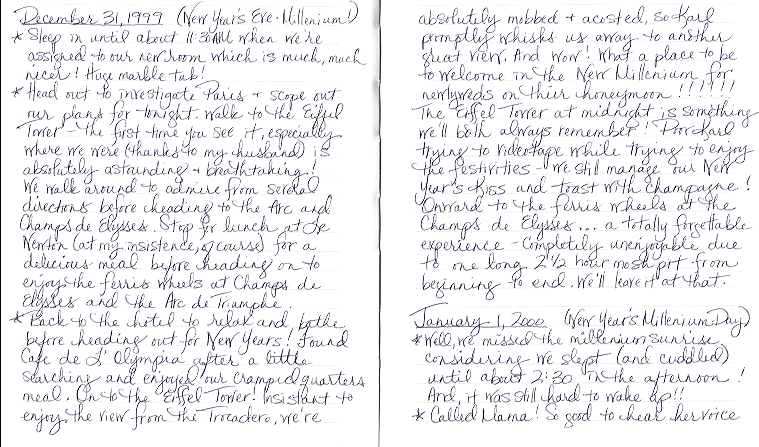 December 31, 1999 (New Year's Eve - Millenium!)
* Sleep in until about 11:30AM when we're
assigned to our new room which is much, much
nicer! Huge marble tub!
* Head out to investigate Paris + scope out
our plans for tonight. Walk to the Eiffel
Tower - the first time you see it, especially
where we were (thanks to my husband) is
absolutely astounding + breathtaking!
We walk around to admire from several
directions before heading to the Arc and
Champs de Elysses. Stop for lunch at Le
Newton (at my insistence, of course) for a
delicious meal before heading on to
enjoy the ferris wheels at Champs de
Elysses and the Arc de Triumphe.
* Back to the hotel to relax and bathe
before heading out for New Years! Found
Cafe de L'Olympia after a little
searching and enjoyed our cramped quarters
meal. On to the Eiffel Tower! Insistant to
enjoy the view from the Trocadero, we're
absolutely mobbed + acosted, so Karl
promptly whisks us away to another
great view. And wow! What a place to be
to welcome in the New Millenium for
newlyweds on their honeymoon !!!!!!
The Eiffel Tower at midnight is something
we'll both always remember! Poor Karl
trying to videotape while trying to enjoy
the festivities - we still manage our New
Year's Kiss and toast with champagne!
Onward to the ferris wheels at the
Champs de Elysses... a totally forgettable
experience - completely unenjoyable due
to one long 2 1/2 hour mosh pit from
beginning to end. We'll leave it at that.
January 1, 2000 (New Year's Millenium Day)
* Well, we missed the millenium sunrise
considering we slept (and cuddled)
until about 2:30 in the afternoon!
And, it was still hard to wake up!!
* Called Mama! So good to hear her voice